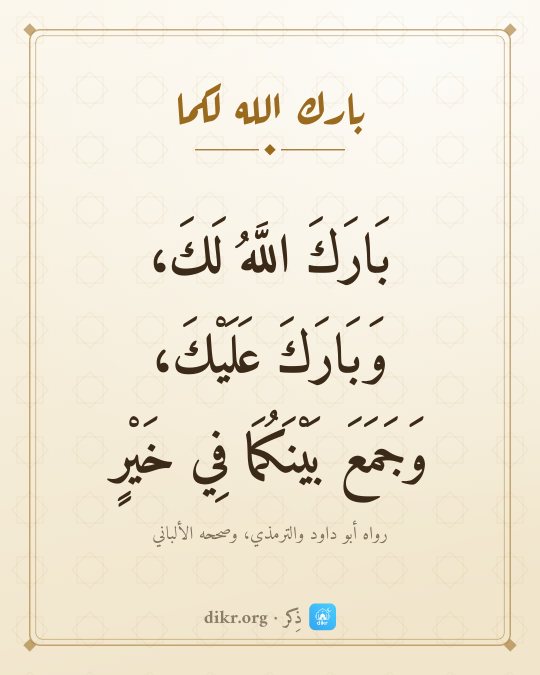 بارك الله لكما
بَارَكَ اللَّهُ لَكَ،
وَبَارَكَ عَلَيْكَ،
وَجَمَعَ بَيْنَكُمَا فِي خَيْرٍ
رواه أبو داود والترمذي، وصححه الألباني
ذِكر · dikr.org
dikr